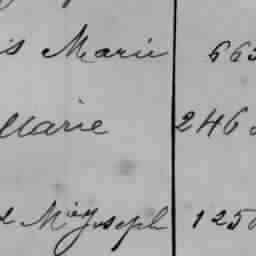 is Marie 663
Marie 246
e M. Joseph 125